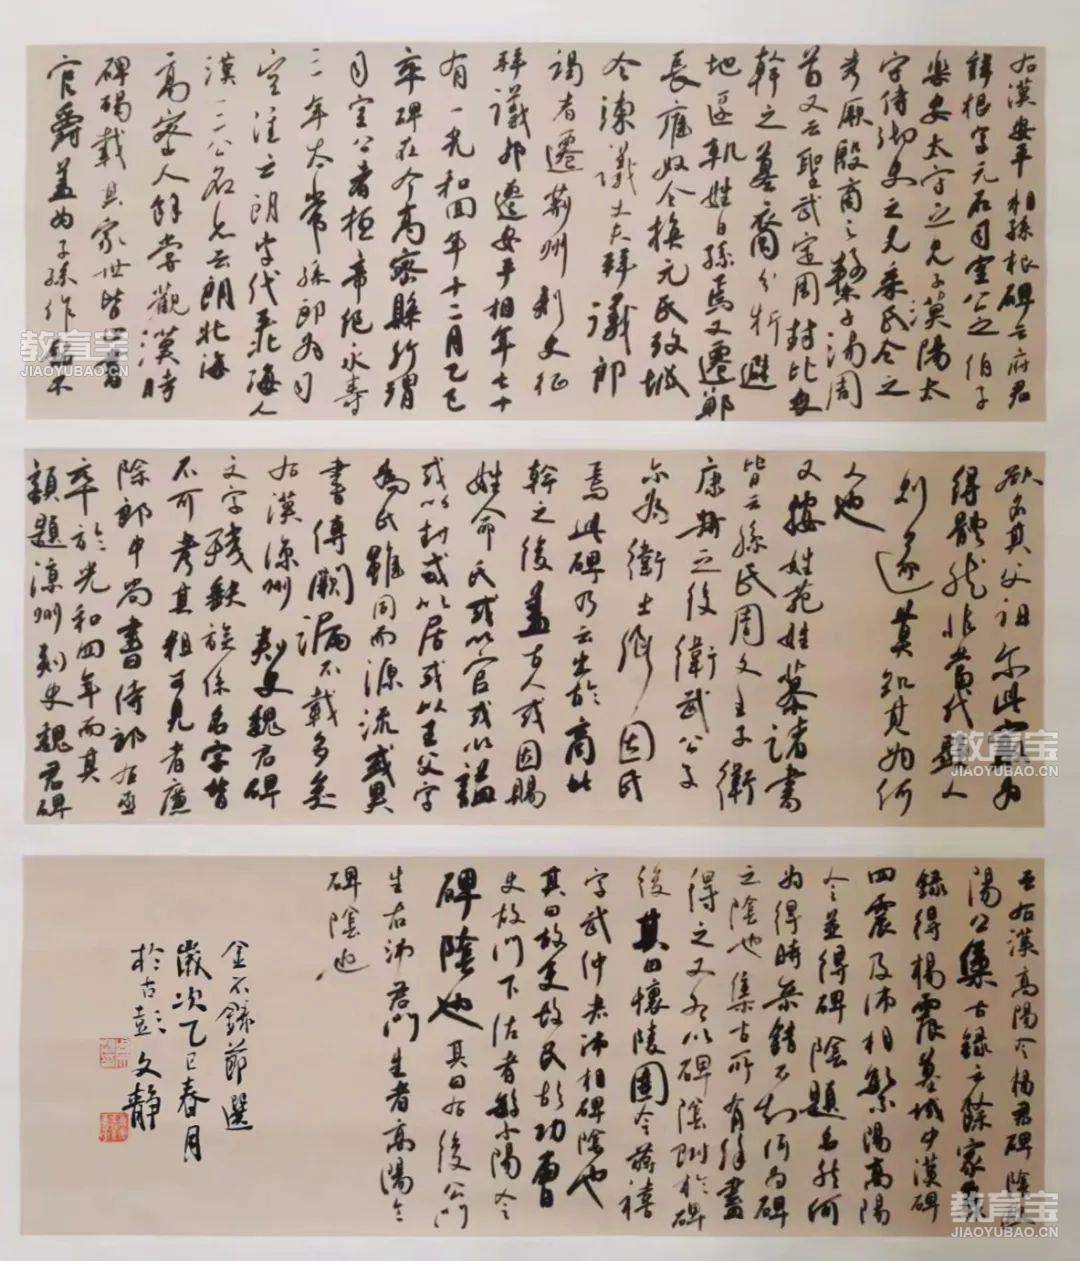 右漢安平相孫根碑云府君
諱根字元石司空公之伯子
樂安太守之兄子漢陽太
守侍御史之兄乘氏令之
考厥殷商之
子湯周
首又云聖武定周封比干
幹之墓裔分析避
地匿軌姓曰孫焉又遷鄭
長雍奴令換元氏考城
令諫議大夫拜議郎
謁者遷荊州刺史征
拜議郎遷安平相年七十
有一光和四年十二月乙巳
卒碑在今高密縣所謂
司空公者桓帝紀永壽
三年太常孫朗為司
空注云朗字代平北海人
漢三公名亦云朗北海
高密人余嘗觀漢時
碑碣載其家世皆止書
官爵蓋為子孫作銘不
欲名其父祖爾此為
得體然非當代顯人
則遂莫知其為何
人也
又按姓苑姓纂諸書
皆云孫氏周文王子衛
康叔之後衛武公子
亦為衛士卿因氏
焉此碑乃云出於商比
幹之後蓋古人或因賜
姓命氏或以官或以謚
或以封或以居或以王父字
為氏雖同而源流或異
書傳闕漏不載多矣
右漢涼州刺史魏君碑
文字殘缺族係名字皆
不可考其粗可見者廉
除郎中尚書侍郎右丞
卒於光和四年而其
額題涼州刺史魏君碑
右漢高陽令楊君碑陰歐
陽公集古錄云餘家集
錄得楊震墓域中漢碑
四震及沛相繁陽高陽
令並得碑陰題名然何
為得時參錯不知何為碑
之陰也集古所有余盡
得之又各以碑陰附於碑
後其曰懷陵圉令蔣禧
字武仲者沛相碑陰也
其曰故吏故民故功曹
史故門下佐者繁陽令
碑陰也其曰右後公門
生右沛君門生者高陽令
碑陰也
金石錄節選
歲次乙巳春月
於古彭 文靜
教育宝
JIAOYUBAO.CN
教育宝
JIAOYUBAO.CN
教育宝
JIAOYUBAO.CN